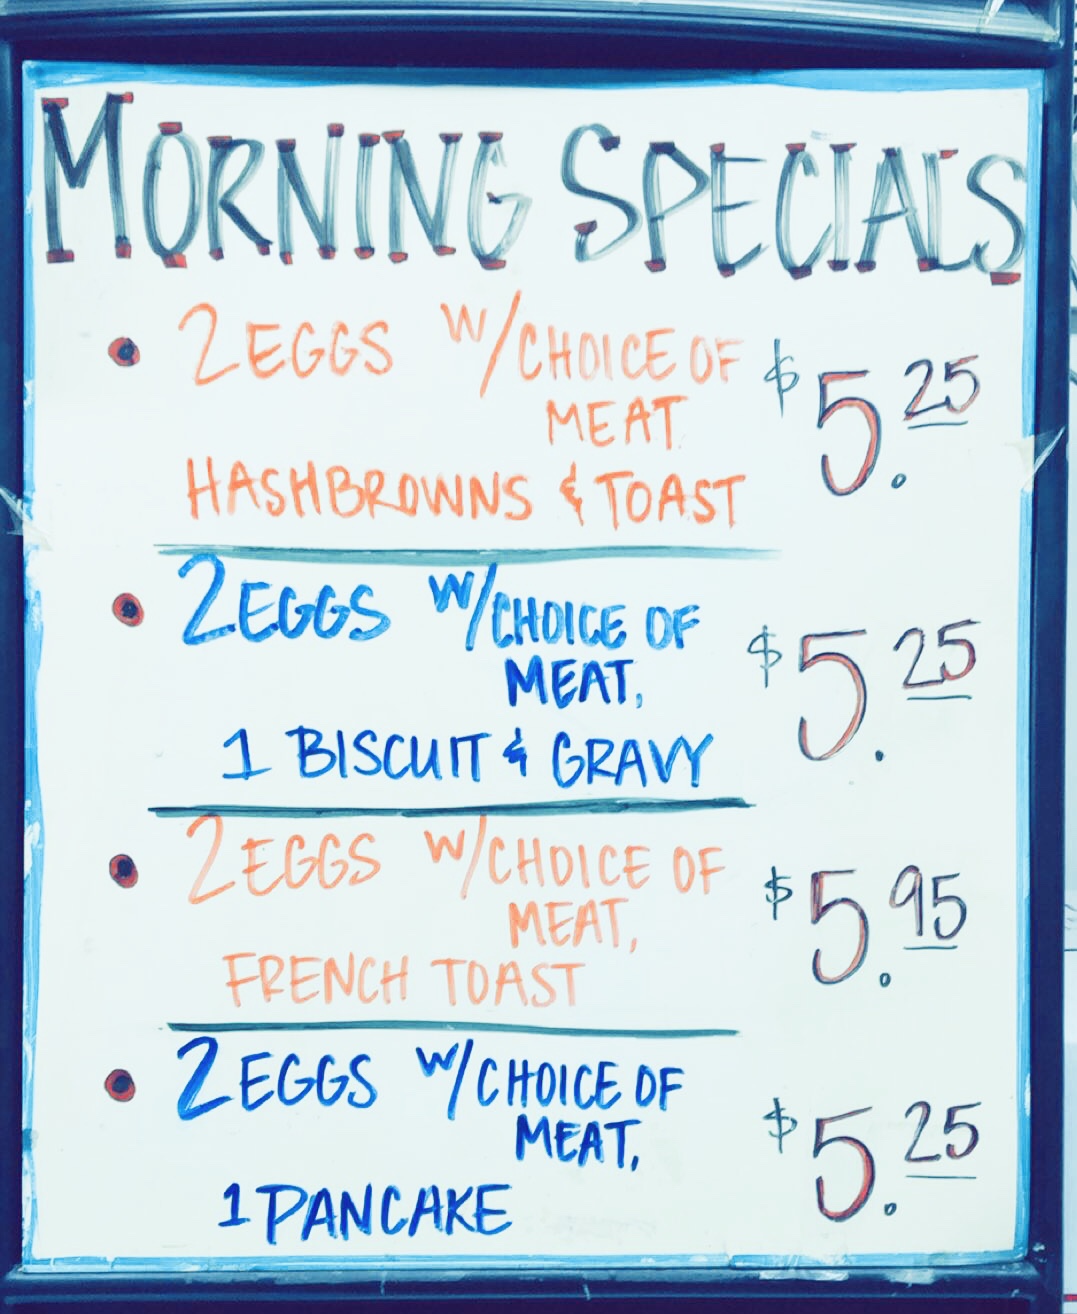 MORNING SPECIALS
• 2 EGGS W/CHOICE OF $5.25
MEAT
HASHBROWNS & TOAST
• 2 EGGS W/CHOICE OF
MEAT, $5.25
1 BISCUIT & GRAVY
• 2 EGGS W/CHOICE OF
MEAT, $5.95
FRENCH TOAST
• 2 EGGS W/CHOICE OF
MEAT, $5.25
1 PANCAKE